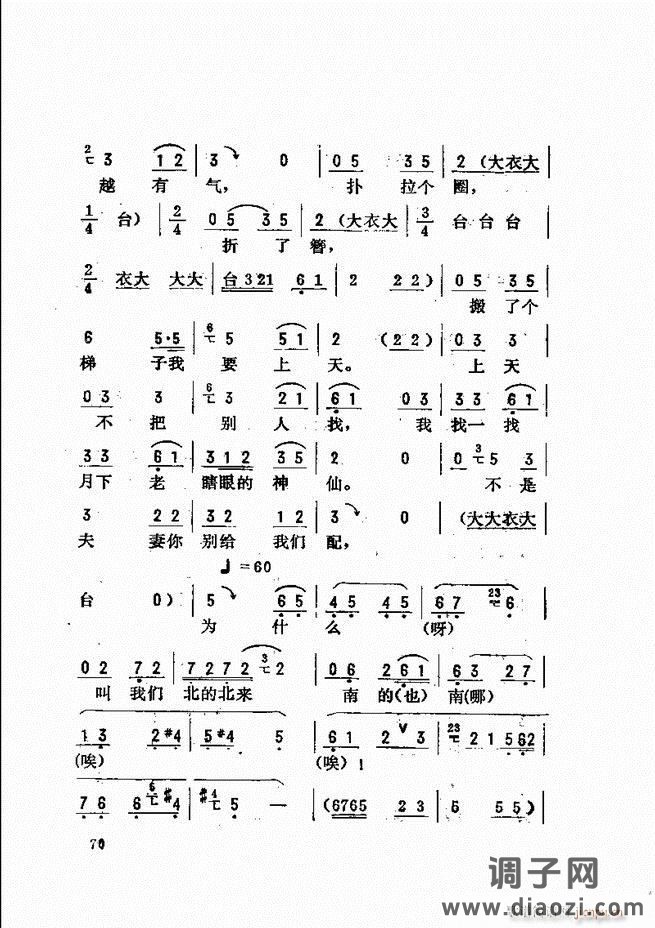 2/7 3 1 2 | 3 0 | 0 5 3 5 | 2 (大衣大
越 有 气， 扑 拉个 圈，
1/4 台) | 2/4 0 5 3 5 | 2 (大衣大 | 3/4 台 台 台
折 了 簪，
2/4 衣大 大大 | 台 321 6 1 | 2 2 2) | 0 5 3 5
搬 了个
6 5·5 | 6 5 5 1 | 2 (2 2) | 0 3 3
梯 子我 要 上 天。 上 天
0 3 3 | 6 3 2 1 | 6 1 0 3 | 3 3 6 1
不 把 别 人 找， 我 找一 找
3 3 6 1 | 3 1 2 3 5 | 2 0 | 0 3 5 3
月下 老 瞎眼的 神 仙。 不 是
3 2 2 | 3 2 1 2 | 3 0 | (大大衣大
夫 妻你 别给 我们 配，
♩=60
台 0) | 5 6 5 | 4 5 4 5 | 6 7 23 6
为 什 么 (呀)
0 2 7 2 | 7 2 7 2 3 2 | 0 6 2 6 1 | 6 3 2 7
叫 我们 北的北来 南 的(也) 南(哪)
1 3 2 #4 | 5 #4 5 | 6 1 2 3 | 23 2 1 5 6 2
(唉) (唉)！
7 6 6 #4 | #4 5 — | (6765 2 3 | 5 5 5)
70
调子网
www.diaozi.com